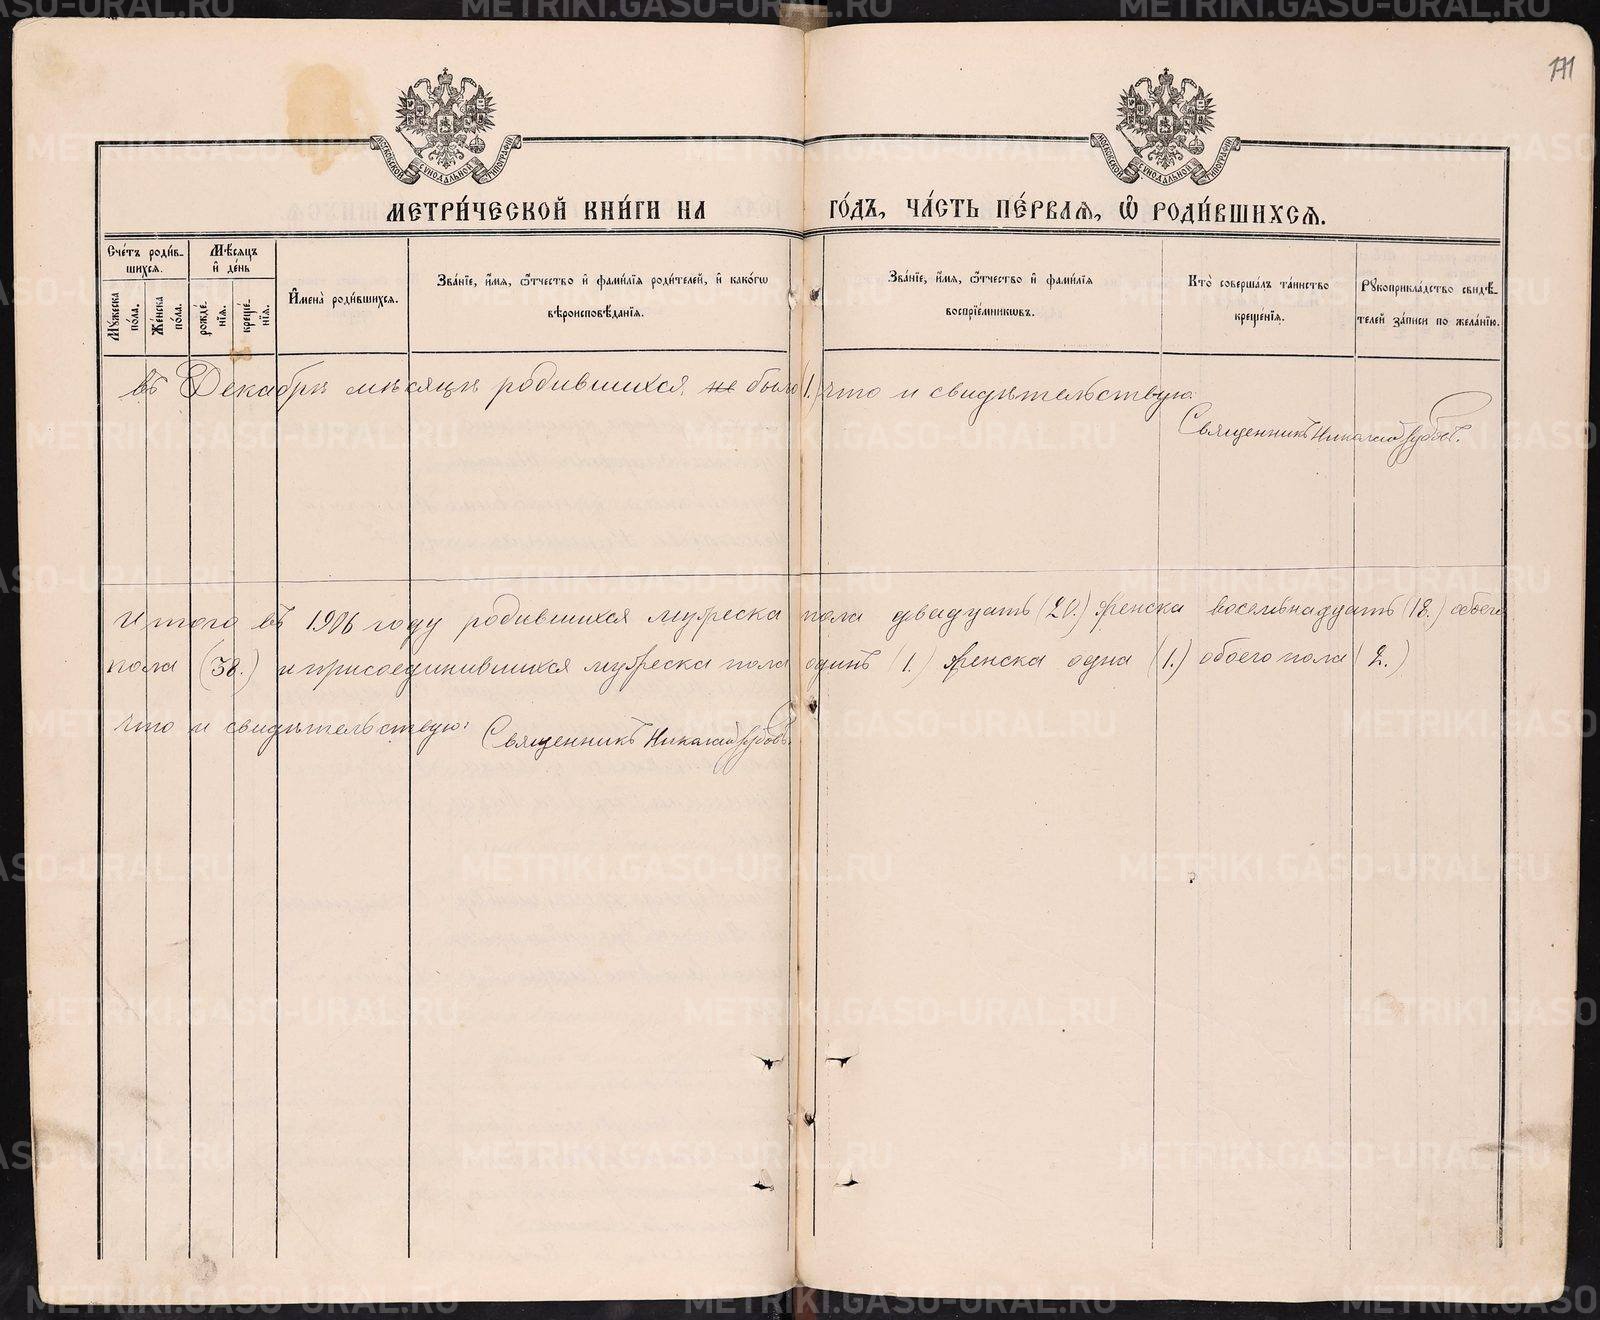 171
МОСКОВСКОЙ СѴНОДАЛЬНОЙ ТИПОГРАФІИ
МОСКОВСКОЙ СѴНОДАЛЬНОЙ ТИПОГРАФІИ
МЕТРИ́ЧЕСКОЙ КНИ́ГИ НА ГО́ДЪ, ЧА́СТЬ ПЕ́РВАѦ, Ѡ РОДИ́ВШИХСѦ.
Сче́тъ роди́в-
шихсѧ.
Мѣ́сѧцъ
и҆ де́нь
Мꙋ́жеска
по́ла.
Же́нска
по́ла.
рожде́-
нїѧ.
креще́-
нїѧ.
И҆мена̀ роди́вшихсѧ.
Зва́нїе, и҆́мѧ, ѻ҆́тчество и҆ фами́лїѧ роди́телей, и҆ како́гѡ
вѣроисповѣ́данїѧ.
Зва́нїе, и҆́мѧ, ѻ҆́тчество и҆ фами́лїѧ
воспрїе́мникѡвъ.
Кто̀ соверша́лъ та́инство
креще́нїѧ.
Рꙋкоприкла́дство свидѣ́-
телей за́писи по жела́нїю.
въ Декабрѣ мѣсяцѣ родившихся не было (1.) что и свидѣтельствую:
Священникъ Николай
Итого въ 1906 году родившихся мужеска пола двадцать (20.) женска восемнадцать (18.) обоего
пола (38.) и присоединившихся мужеска пола одинъ (1.) женска одна (1.) обоего пола (2.)
что и свидѣтельствую: Священникъ Николай
METRIKI.GASO-URAL.RU